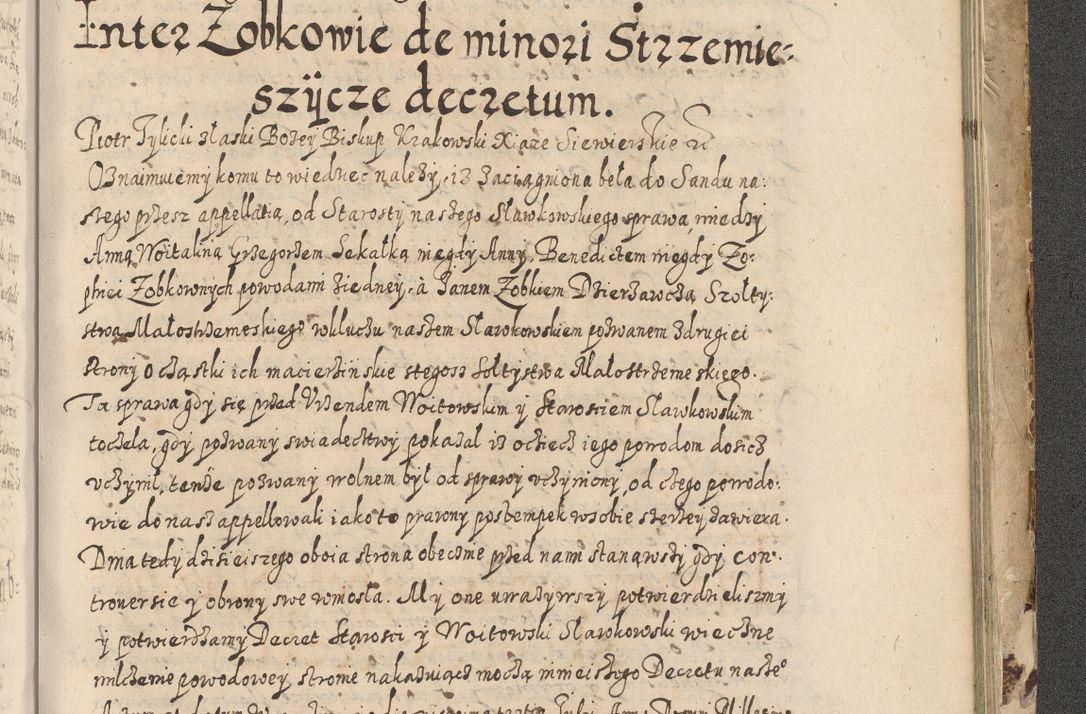 Inter Zobkowie de minori Strzemie:
szÿcze decretum.
Piotr Tylicki zlaski Bozey Biskup Krakowski Xiąze Siewierskie
Oznaimuiemy komu to wiedziec nalezy, iz zaciągniona beła do Sandu na:
szego przesz appellatią, od Starosty naszego Sławkowskiego sprawa, miedzy
Anną Woitaliną Grzegorzem Sekalką niegdy Anny, Benedictem niegdy Zo:
phiei Zobkownych powodami ziedney, a Janem Zobkiem Dzierzawczą Szołty:
stwa Małostrzemeskiego wkluczu naszem Sławkowskiem pozwanem zdrugiei
strony o cząstki ich macierzinskie stegosz sołtystwa Małostrzemeskiego.
Ta sprawa gdy się przed Vrzendem Woitowskim y Starosciem Slawkowskim
toczela, gdy pozwany swiadecztwy pokazal iz ocziecz iego powodom dosicz
vczynił, tenze pozwany wolnem był od sprawy vczyniony, od czego powodo:
wie do nasz appellowali iako to prawny postempek wsobie szerzey zawiera.
Dnia tedy dzisieiszego oboia strona obecznie przed nami stanąwszy gdy con:
trouersie y obrony swe wniosła. My one uwazywszy potwierdzielismy
y potwierdzamy Decret Starosci y Woitowski Slawkowski wieczne
milczenie powodowey stronie nakazuiącz moczą ninieiszego Decretu nasze°